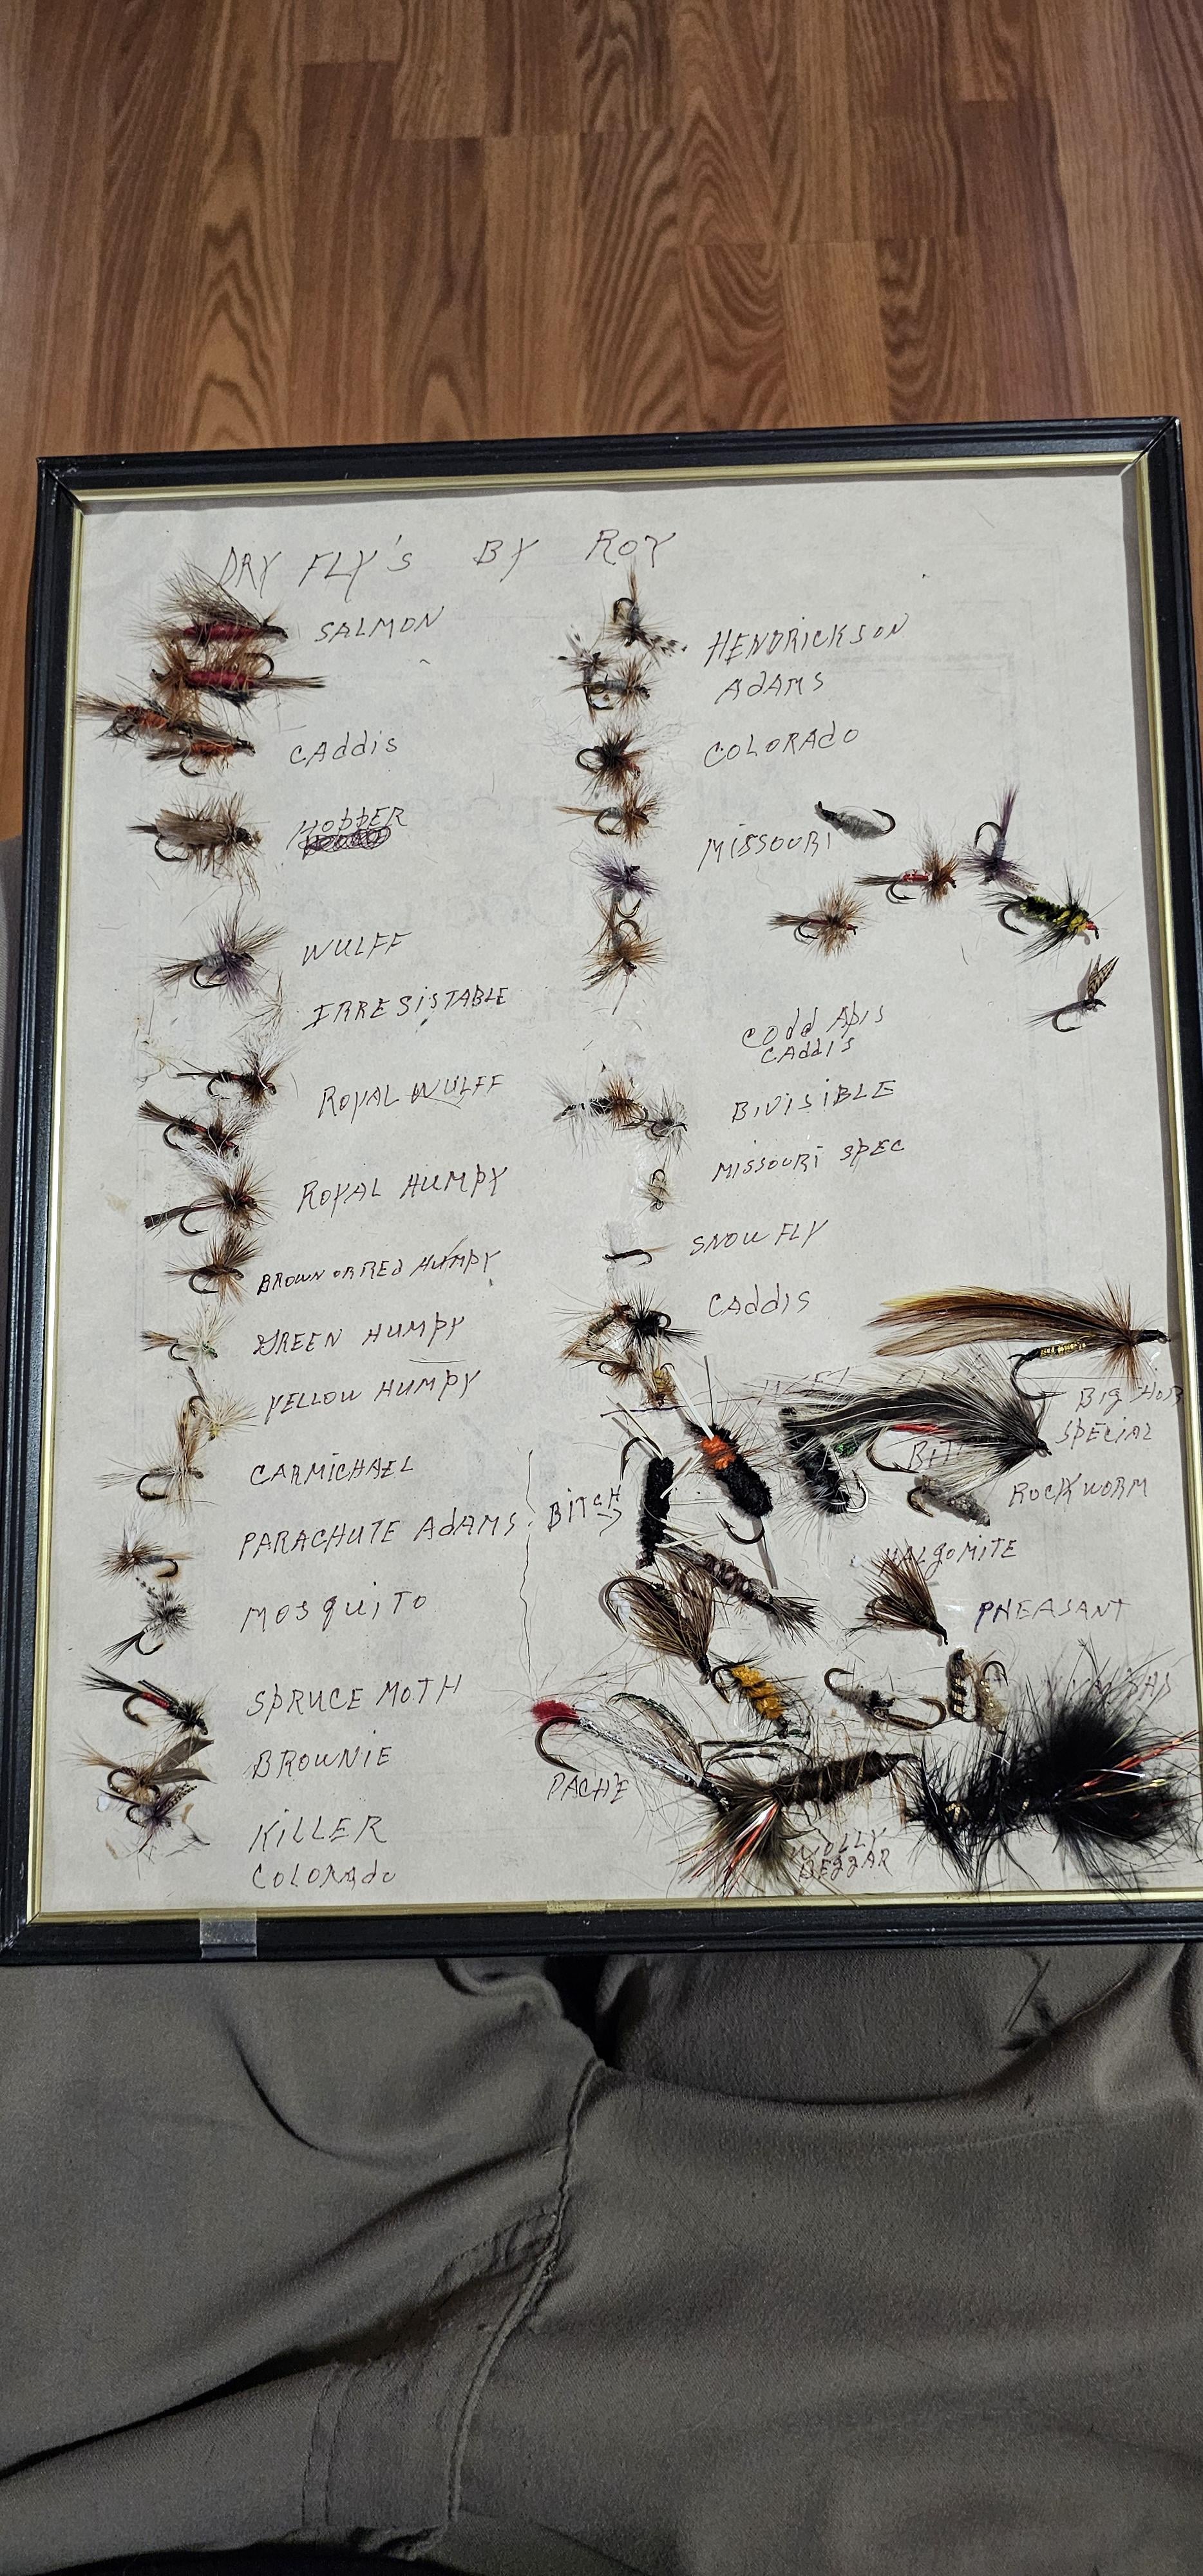 DRY FLY's BY ROY
SALMON
CAddis
HOPPER
WULFF
IRRESISTABLE
ROYAL WULFF
ROYAL HUMPY
BROWN OR RED HUMPY
GREEN HUMPY
YELLOW HUMPY
CARMICHAEL
PARACHUTE AdAMS
MOSquiTO
SPRUCE MOTH
BROWNIE
KILLER
COLORAdo
HENDRICKSON
AdAMS
COLORAdO
MISSOURI
CAddis
BIVISIBLE
MISSOURI SPEC
SNOW FLY
CAddIS
BIG
SPECIAL
ROCK WORM
BITCH
PHEASANT
PACHE